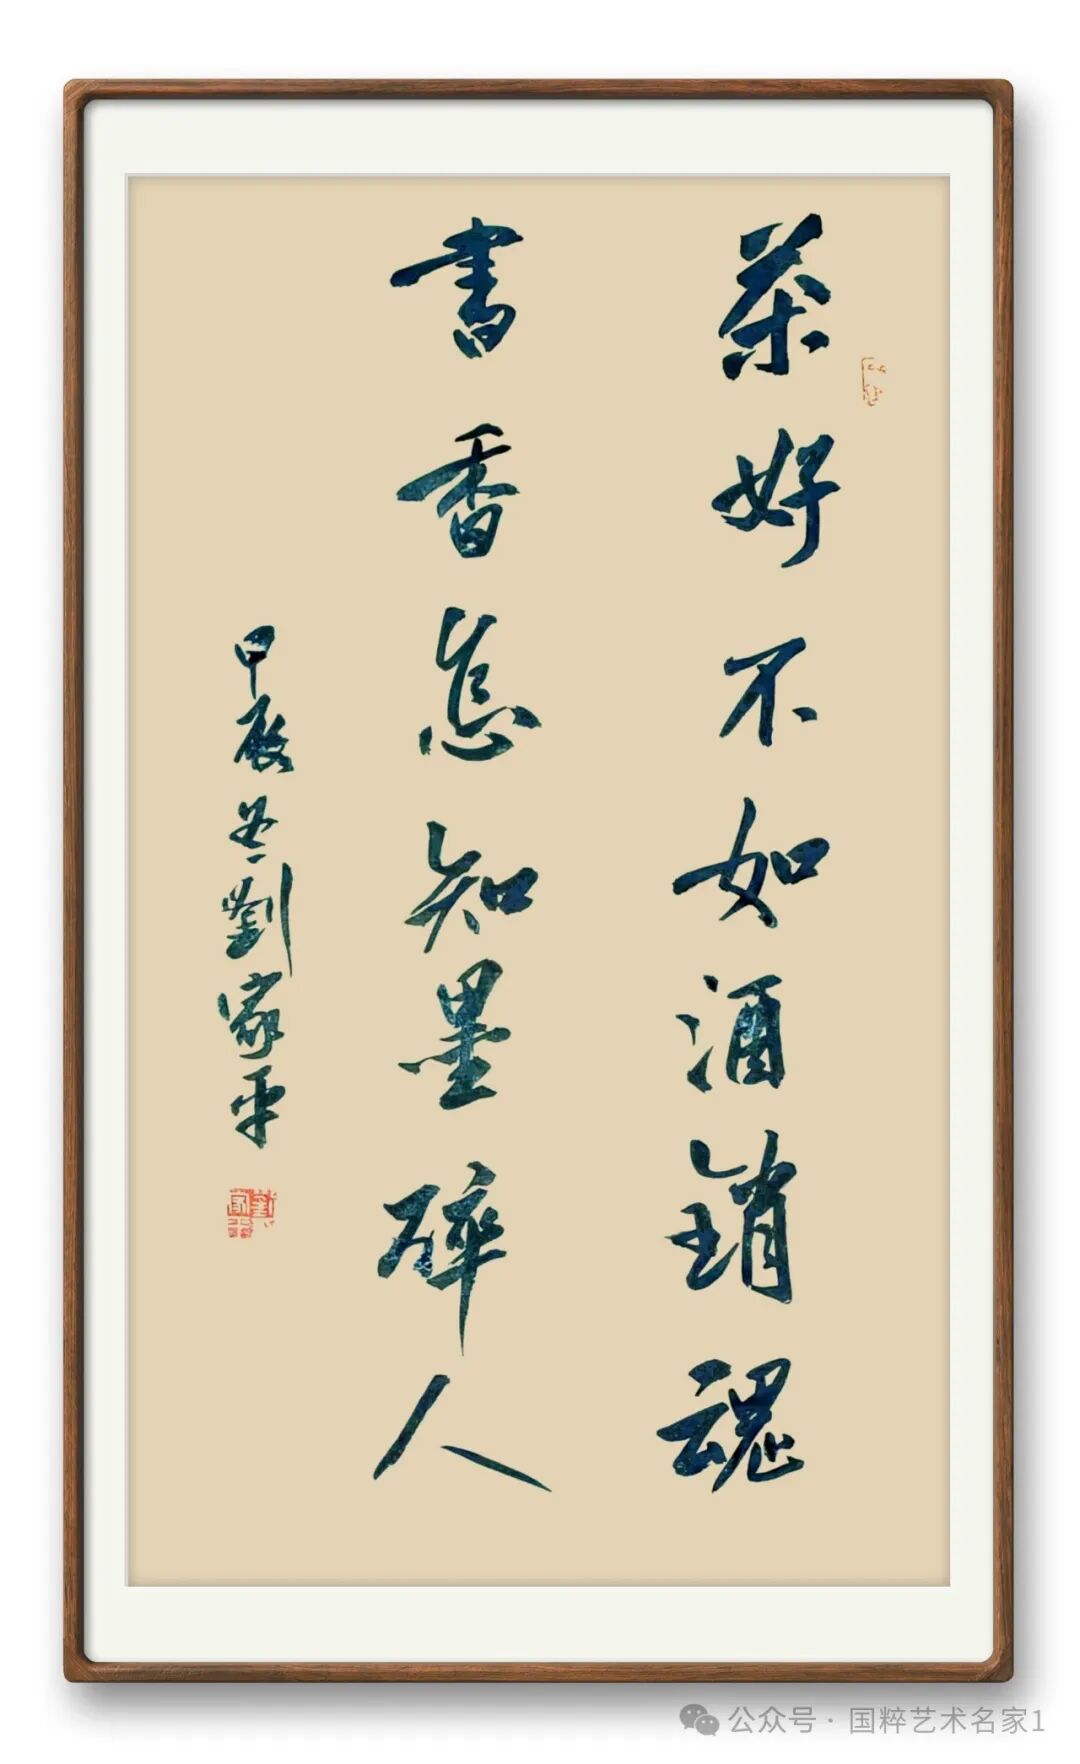 茶好不如酒銷魂
書香怎知墨碎人
甲辰冬劉家平
公众号·国粹艺术名家1